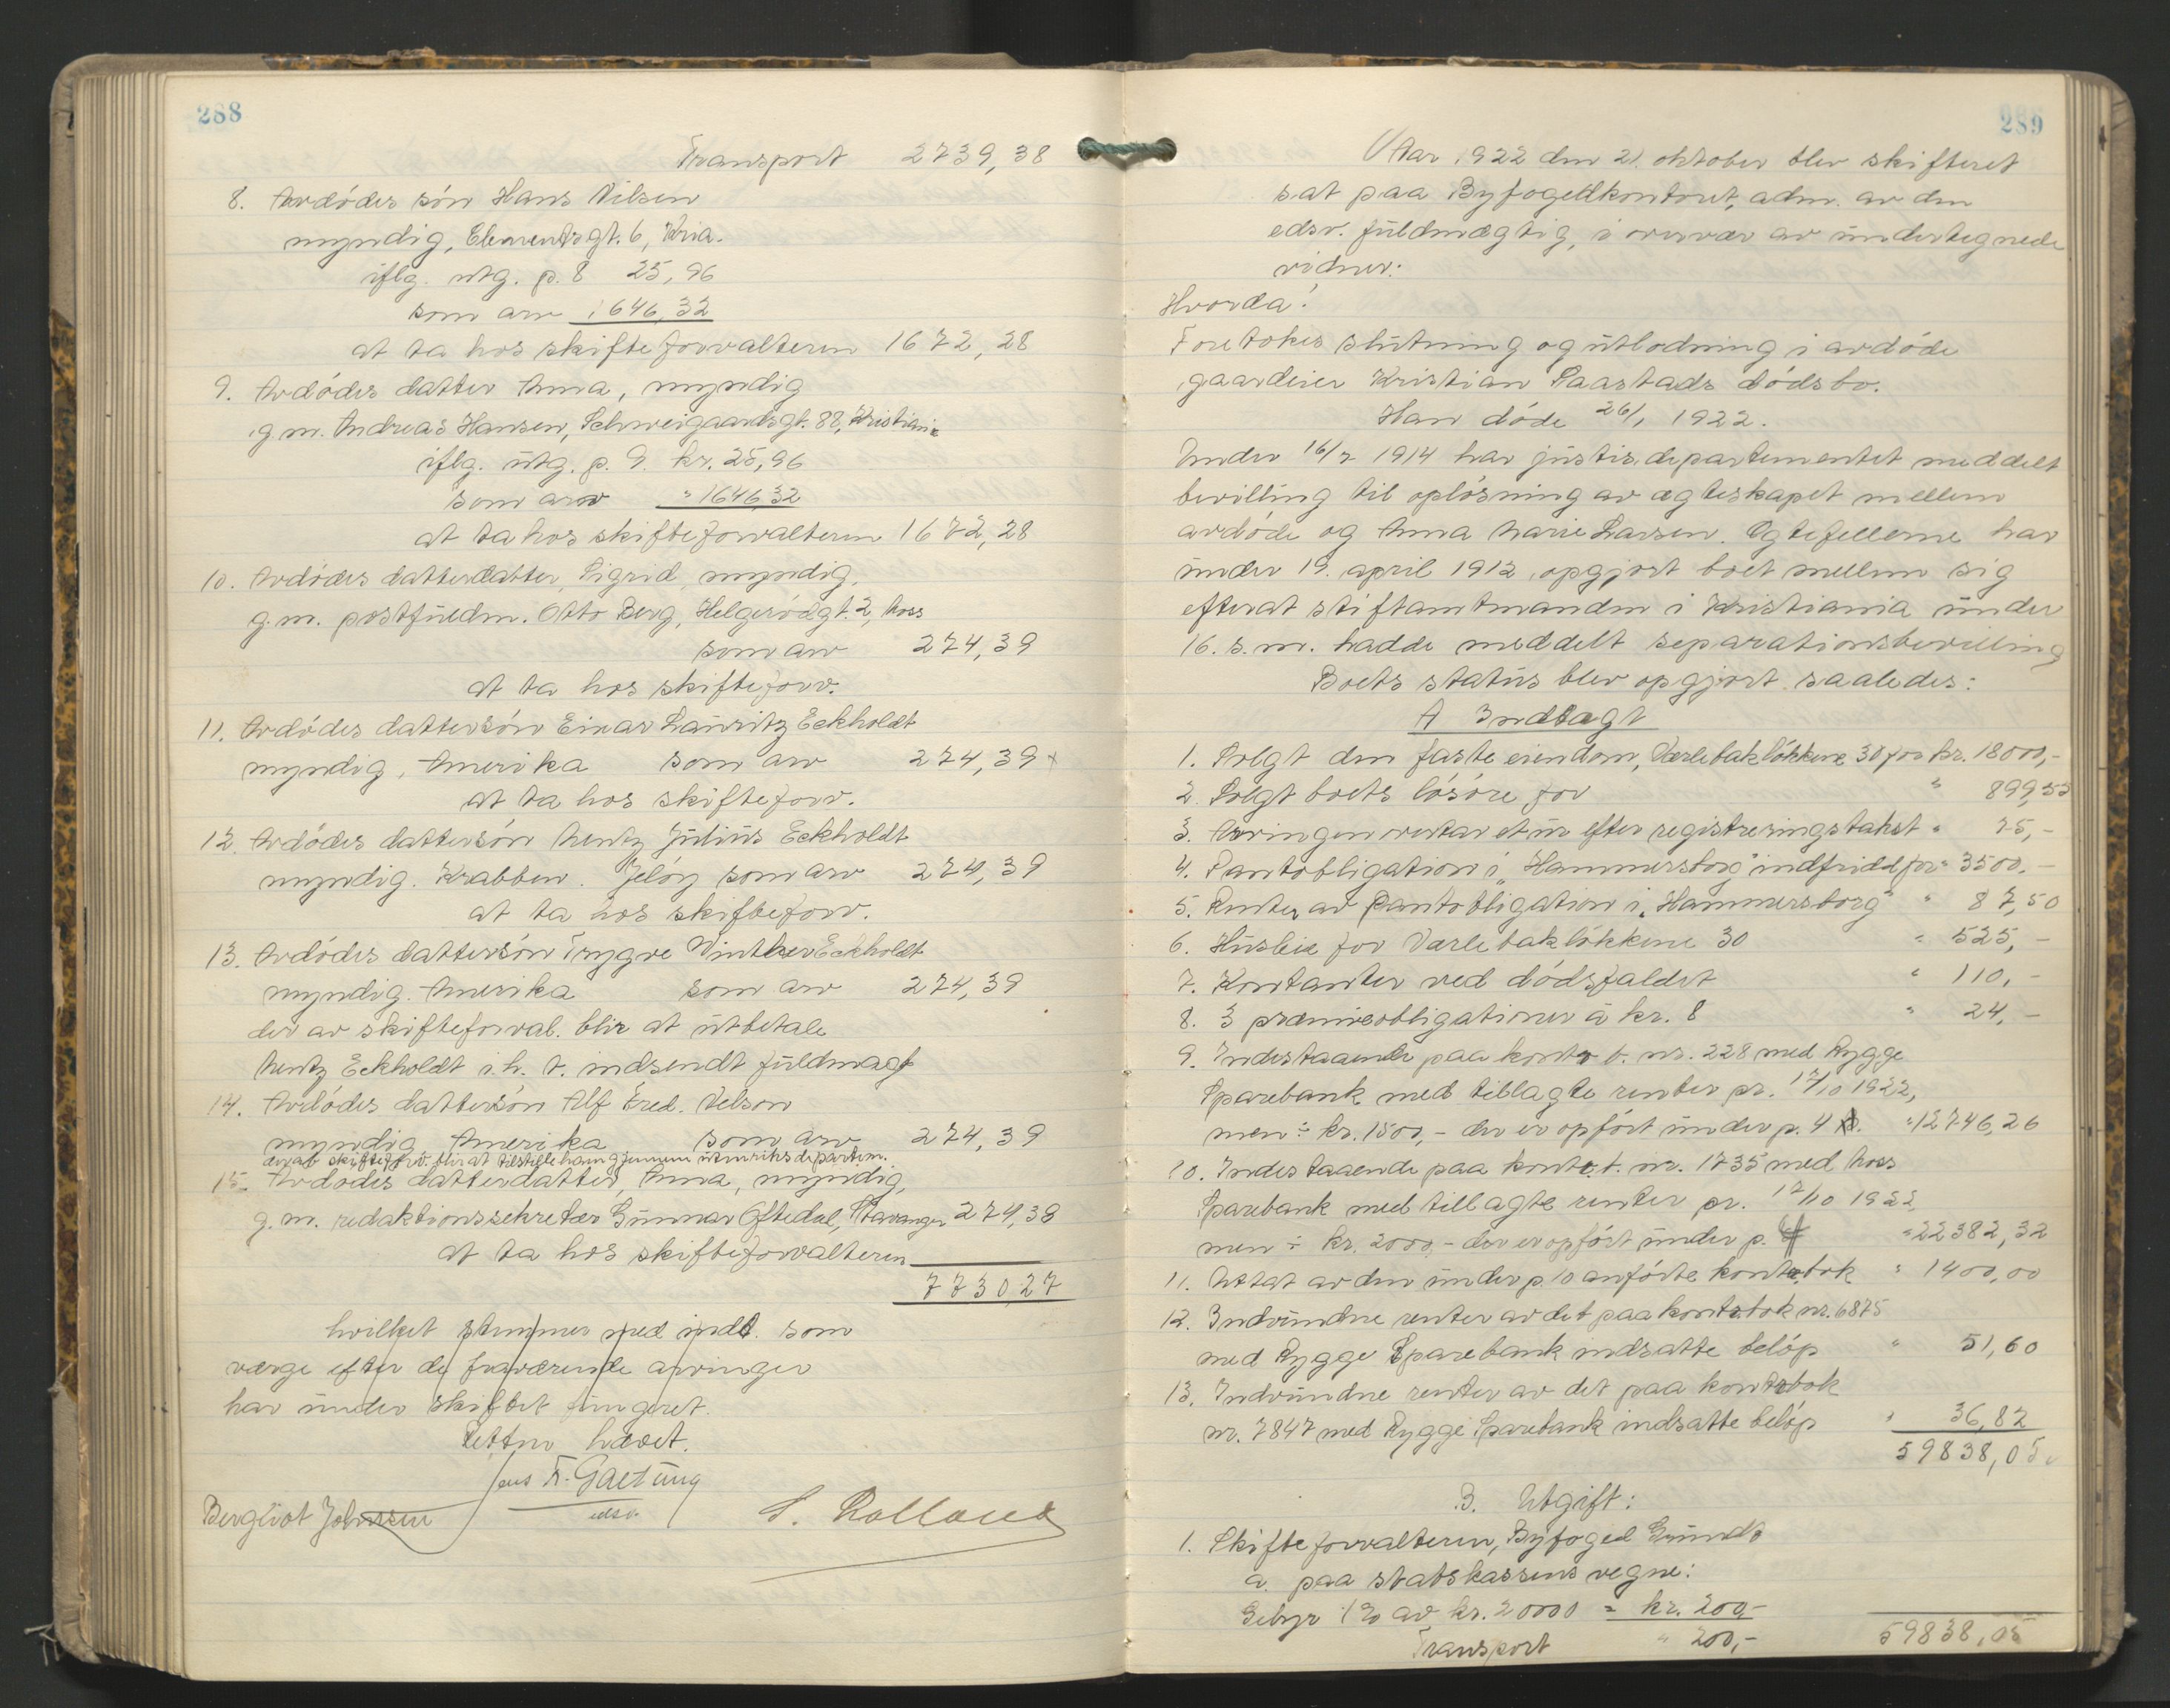 288
Transport 2739,38
8. Avdødes søn Hans Nilsen
myndig, Elementsgt. 6, Kria.
iflg. utg. p. 8 25,96
som arv 1646,32
at ta hos skifteforvalteren 1672,28
9. Avdødes datter Anna, myndig
g.m. Andreas Hansen, Schweigaardsgt. 88, Kristiania
iflg. utg. p. 9. kr. 25,96
som arv " 1646,32
at ta hos skifteforvalteren 1672,28
10. Avdødes datterdatter, Sigrid, myndig,
g.m. postfuldm. Otto Berg, Helgerødgt. 2, Moss
som arv 274,39
at ta hos skifteforv.
11. Avdødes dattersøn Einar Lauritz Eckholdt
myndig, Amerika som arv 274,39 x
at ta hos skifteforv.
12. Avdødes dattersøn Mentz Julius Eckholdt
myndig. Krabben. Jeløy som arv 274,39
at ta hos skifteforv.
13. Avdødes dattersøn Trygve Winther Eckholdt
myndig. Amerika som arv 274,39
der av skifteforval. blir at utbetale
Mentz Eckholdt i.h.t. indsendt fuldmagt
14. Avdødes dattersøn Alf Fred. Nelson
myndig Amerika som arv 274,39
der av skifteforv. blir at tilstille ham gjennem utenriksdepartem.
15. Avdødes datterdatter, Anna, myndig,
g.m. redaktionssekretær Gunnar Oftedal, Stavanger 274,38
at ta hos skifteforvalteren
7730,27
hvilket stemmer med indt. som
verge efter de fraværende arvinger
har under skiftet fungeret.
Retten hævet.
Jens F. Gaetung
edsv.
Bergliot Johnssen S. Rolland
289
Aar 1922 den 21. oktober blev skifteret
sat paa Byfogedkontoret, adm. av den
edsv. fuldmægtig, i overvær av undertegnede
vidner:
Hvorda!
Foretokes slutning og utlodning i avdøde
gaardeier Kristian Saastads dødsbo.
Han døde 26/1 1922.
Under 16/7 1914 har justisdepartementet meddelt
bevilling til opløsning av ægteskapet mellem
avdøde og Anna Marie Larsen. Egtefellerne har
under 19. april 1912 opgjort boet mellem sig
efterat stiftamtmanden i Kristiania under
16. s.m. hadde meddelt separationsbevilling
Boets status blev opgjort saaledes:
A Indtægt
1. Solgt den faste eiendom, Værlebakløkkene 30 for kr. 18000,-
2. Solgt boets løsøre for " 899,55
3. Arvingen uttar et ur efter registreringstakst " 75,-
4. Pantobligation i "Hammersborg" indfridd for " 3500.-
5. Renter av Pantobligation i "Hammersborg" " 87,50
6. Husleie for Værlebakløkkene 30 " 525,-
7. Kontanter ved dødsfaldet " 110,-
8. 3 præmieobligationer à kr. 8 " 24,-
9. Indestaaende paa kontr b. nr. 228 med Rygge
Sparebank med tillagte renter pr. 17/10 1922,
men ÷ kr. 1500,- der er opført under p. 4 " 12746,26
10. Indestaaende paa kontr. b. nr. 1735 med Moss
Sparebank med tillagte renter pr. 17/10 1922,
men ÷ kr. 2000,- der er opført under p. 4 " 22382,32
11. Uttat av den under p. 10 anførte kontrabok " 1400,00
12. Indvundne renter av det paa kontrabok nr. 6875
med Rygge Sparebank indsatte beløp " 51,60
13. Indvundne renter av det paa kontrabok
nr. 7847 med Rygge Sparebank indsatte beløp " 36,82
59838,05
B. Utgift:
1. Skifteforvalteren, Byfoged Grundt
a. paa statskassens vegne:
Gebyr 1% av kr. 20000 = kr. 200,-
Transport " 200,- 59838,05